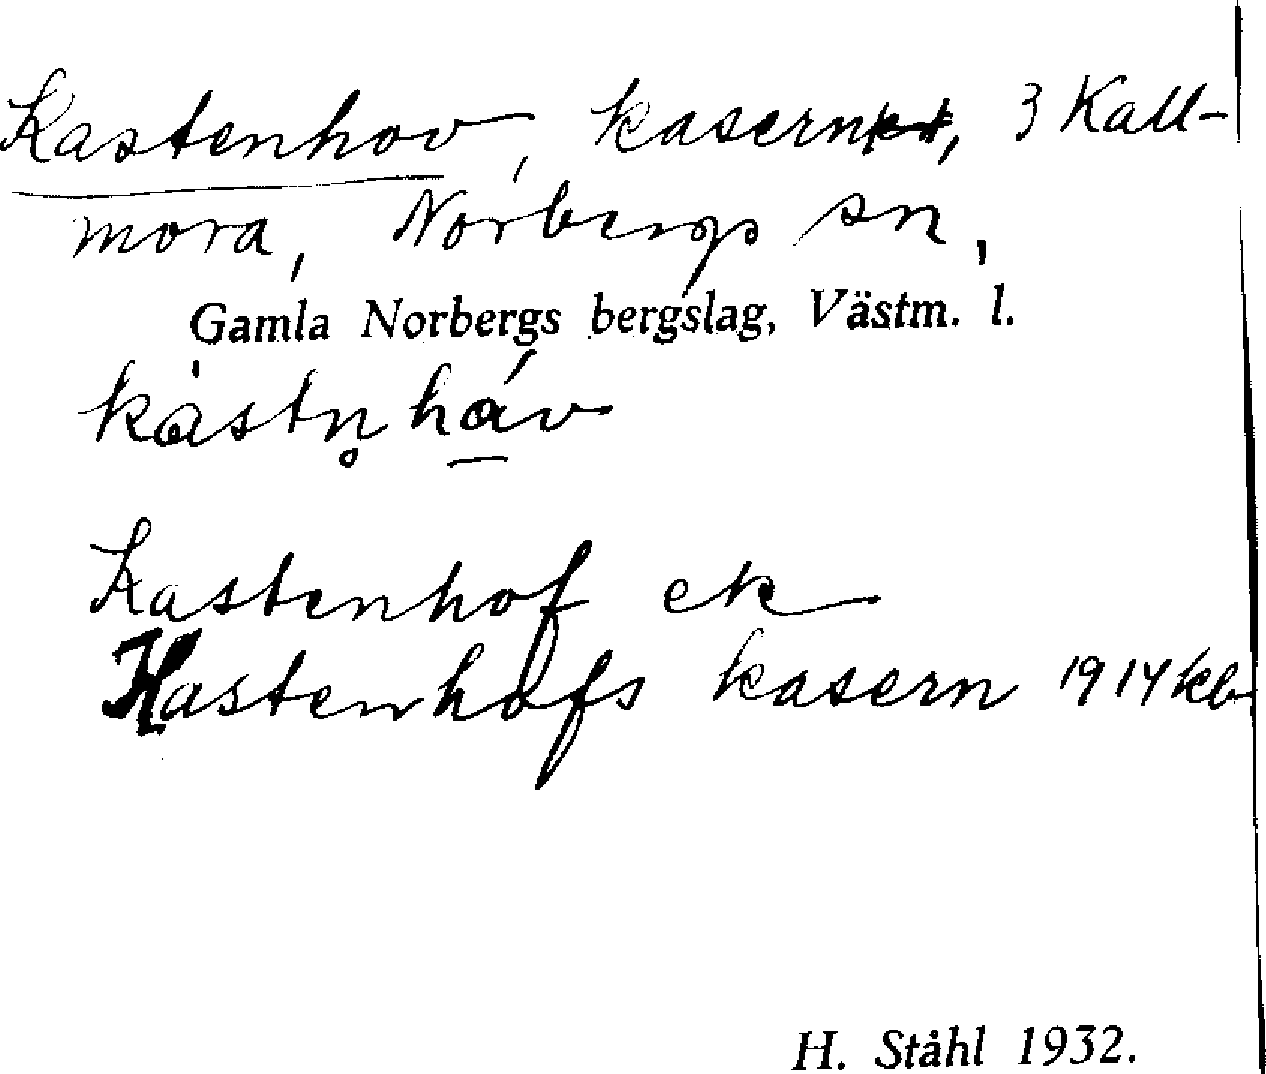 Kastenhov, kasern, 3 Kall-
mora, Norbergs sn,
Gamla Norbergs bergslag, Västm. l.
kàstn̥háv
Kastenhof ek
Hastenhofs kasern 1914 kb
H. Ståhl 1932.